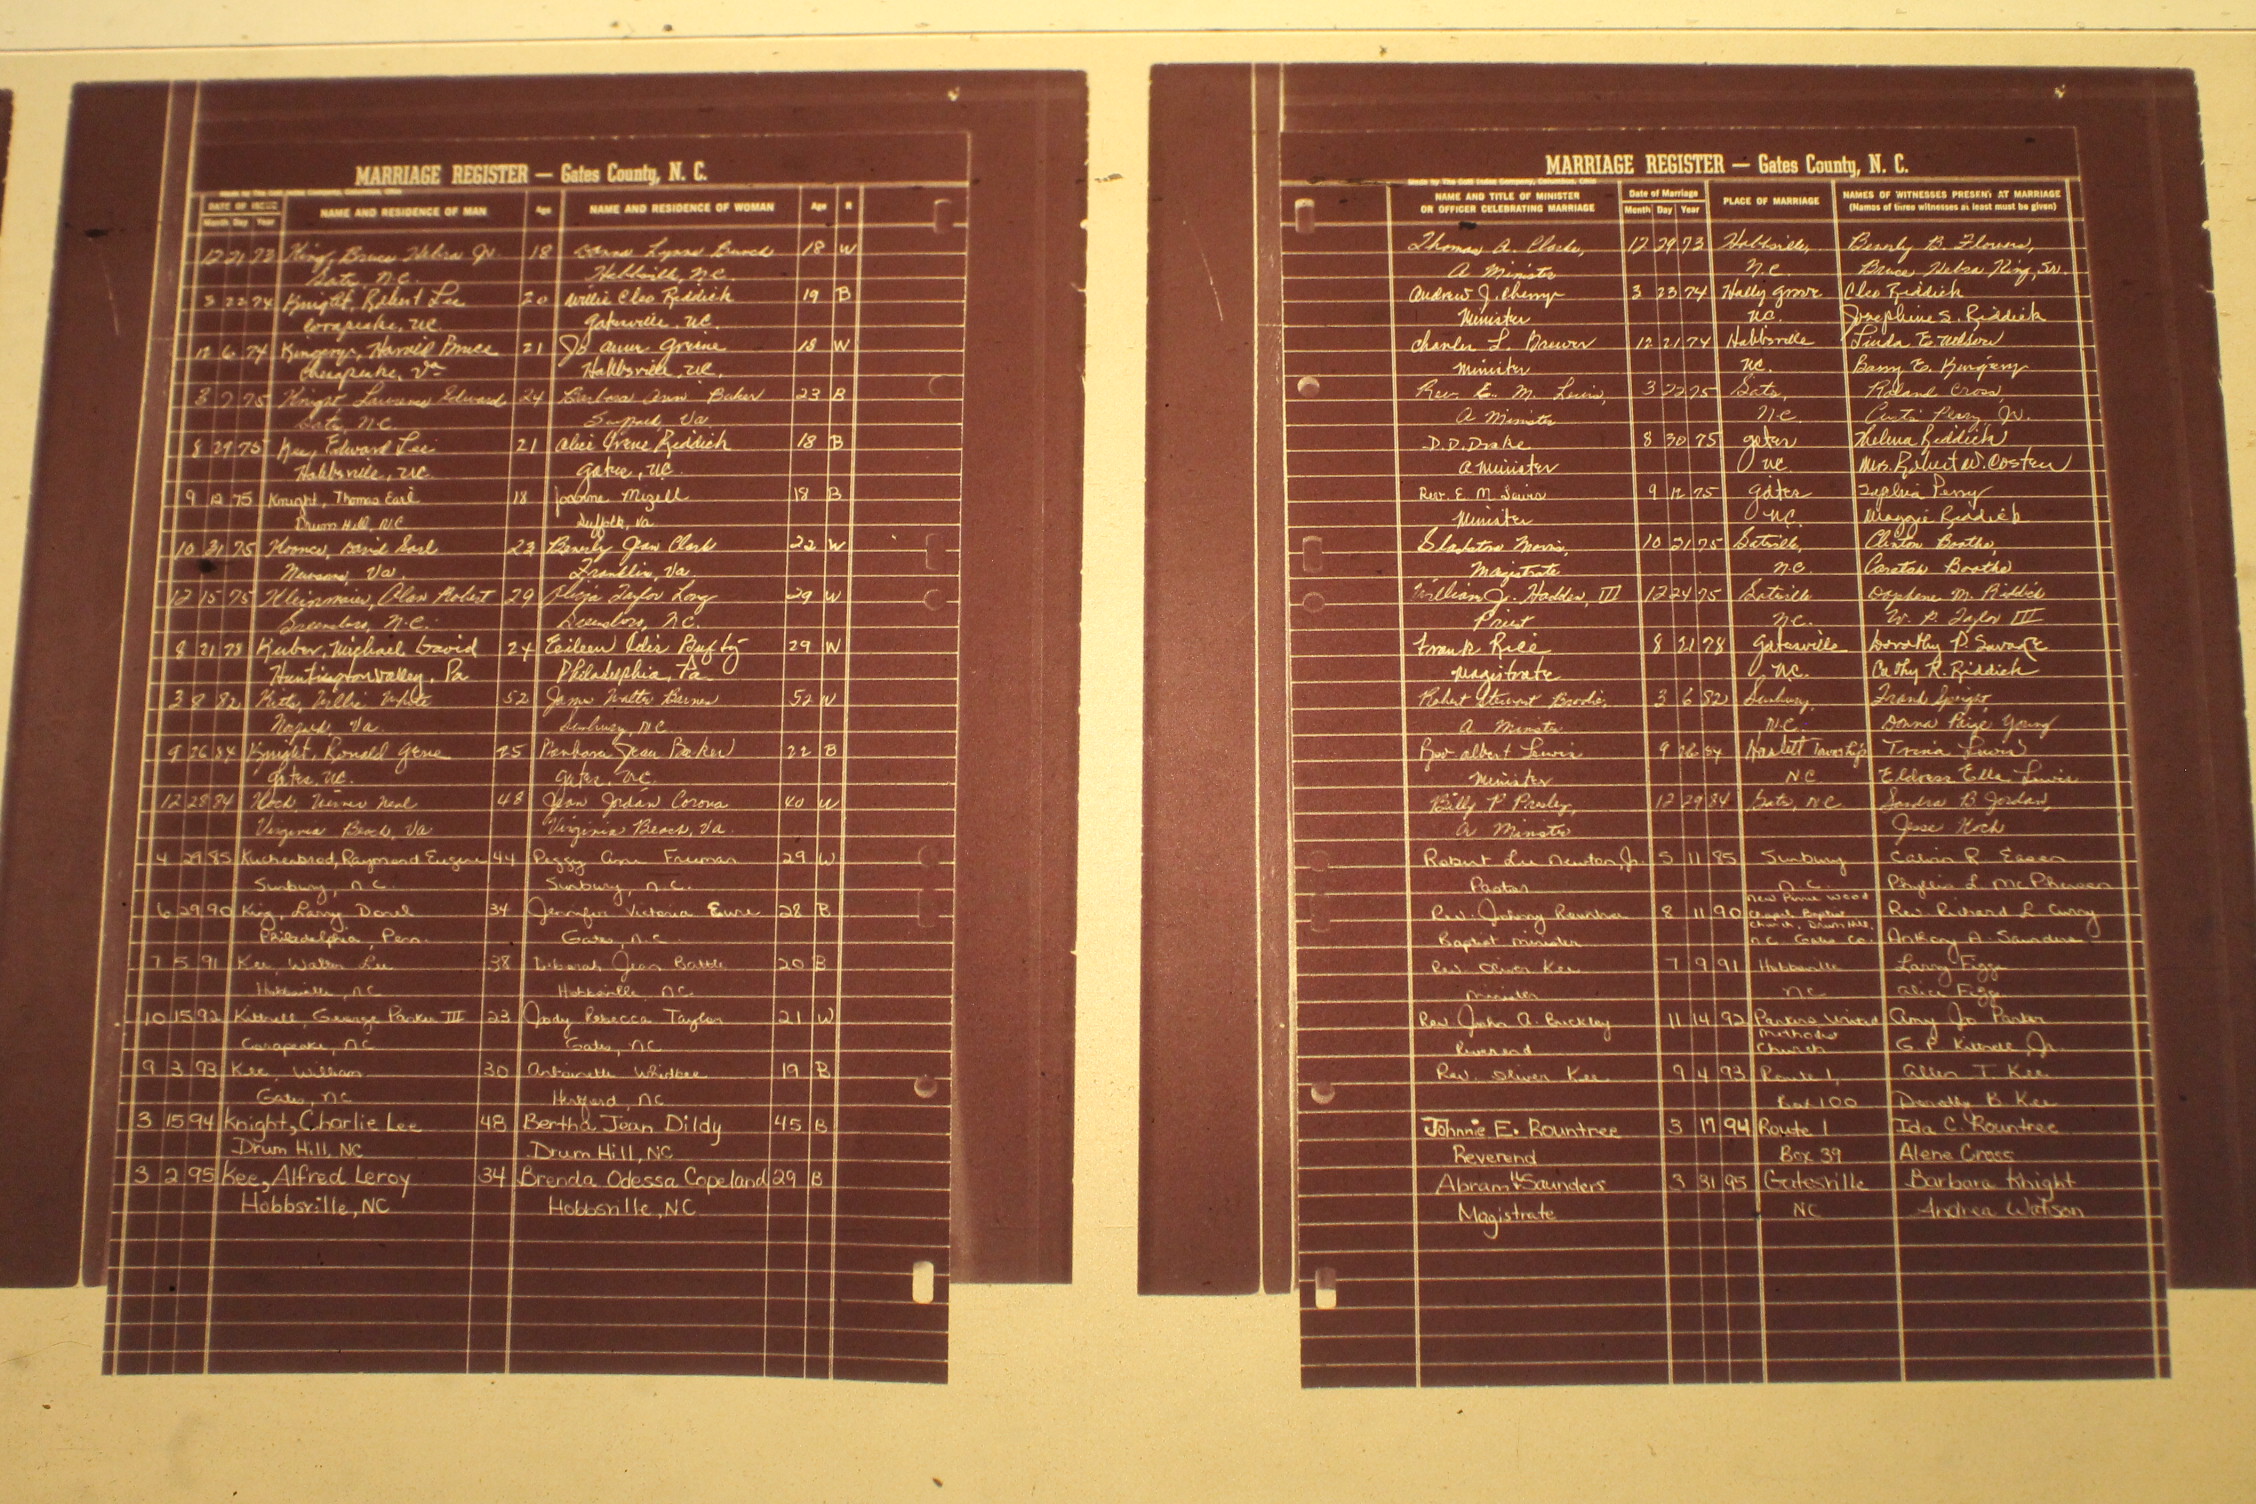 MARRIAGE REGISTER — Gates County, N. C.
DATE OF ISSUE
Month Day Year
NAME AND RESIDENCE OF MAN
Age
NAME AND RESIDENCE OF WOMAN
Age
R
12 21 73 King, Bruce Jr. 18 Lynn 18 W
N.C. Hobbsville, N.C.
3 22 74 Knight, Robert Lee 20 Willie Cleo Riddick 19 B
Corapeake, NC Gatesville, NC
12 6 74 21 Jo Anne Greene 18 W
Chesapeake, Va Hobbsville, NC
3 7 75 Knight Edward 24 Barbara Ann Baker 23 B
N.C. Va
8 29 75 Kee, Edward Lee 21 Alice Riddick 18 B
Hobbsville, NC NC
9 12 75 Knight, Thomas Earl 18 Mizell 18 B
Drum Hill, NC Suffolk, Va
10 31 75 David Earl 23 Beverly Jean Clark 22 W
Va. Franklin, Va
12 15 75 Alan Robert 29 Taylor Long 29 W
Greensboro, N.C. Greensboro, N.C.
8 21 78 Michael David 24 Eileen 29 W
Huntington Valley, Pa Philadelphia, Pa
3 8 82 Willie White 52 Walter Barnes 52 W
Va Sunbury, N.C.
9 26 84 Knight, Ronald Gene 25 Barbara Jean Baker 22 B
Gates, NC. Gates, NC.
12 28 84 Neal 48 Jean Jordan Corova 40 W
Virginia Beach, Va Virginia Beach, Va.
4 29 85 Kuchenbrod, Raymond Eugene 44 Peggy Ann Freeman 29 W
Sunbury, N.C. Sunbury, N.C.
6 29 90 King, Larry 34 Jennifer Victoria Eure 28 B
Philadelphia, Penn. Gates, N.C.
7 5 91 Kee, Lee 38 Deborah Jean Battle 20 B
Hobbsville, NC Hobbsville, NC
10 15 92 Kittrell, George Parker III 23 Jody Rebecca Taylor 21 W
Corapeake, NC Gates, NC
9 3 93 Kee, William 30 Antoinette Whidbee 19 B
Gates, NC Hertford, NC
3 15 94 Knight, Charlie Lee 48 Bertha Jean Dildy 45 B
Drum Hill, NC Drum Hill, NC
3 2 95 Kee, Alfred Leroy 34 Brenda Odessa Copeland 29 B
Hobbsville, NC Hobbsville, NC
MARRIAGE REGISTER — Gates County, N. C.
NAME AND TITLE OF MINISTER
OR OFFICER CELEBRATING MARRIAGE
Date of Marriage
Month Day Year
PLACE OF MARRIAGE
NAMES OF WITNESSES PRESENT AT MARRIAGE
(Names of three witnesses at least must be given)
Thomas A. 12 29 73 Hobbsville, Beverly B. Flowers,
A Minister N.C. Bruce King, Sr.
Andrew J. Cherry 3 23 74 Holly Grove Cleo Riddick
Minister NC. Josephine S. Riddick
Charles L. Brewer 12 21 74 Hobbsville Linda E. Wilson
Minister NC. Barry E.
Rev. E. M. Lewis, 3 22 75 Roland Cross,
A Minister N.C. Curtis Perry, Jr.
D.D. Drake 8 30 75 Thelma Riddick
A Minister NC. Mrs. Robert W. Costen
Rev. E. M. Lewis 9 12 75 Perry
Minister NC. Maggie Riddick
Gladston Morris, 10 31 75 Clinton Boothe,
Magistrate N.C. Boothe
William J. Hadden, III 12 24 75 M. Riddick
Priest N.C. W. P. Taylor III
Frank Rice 8 21 78 Gatesville Dorothy P. Savage
Magistrate NC. Cathy R. Riddick
Robert Stewart Brodie, 3 6 82 Sunbury, Frank
A Minister N.C. Donna Paige Young
Rev Albert Lewis 9 26 84 Haslett Township Trena Lewis
Minister NC Eldress Ella Lewis
Billy P. Presley, 12 29 84 N.C. Sandra B. Jordan,
A Minister Jesse
Robert Lee Newton, Jr. 5 11 85 Sunbury Calvin R.
Pastor N.C. Phyllis L. McPherson
Rev. Johnny 8 11 90 New Pinnie Wood Chapel Baptist Rev. Richard L. Curry
Baptist Minister Church, Drum Hill, N.C. Gates Co. Anthony A. Saunders
Rev. Oliver Kee 7 9 91 Hobbsville Larry Figgs
Minister NC Alice Figgs
Rev. John A. Buckley 11 14 92 Parkers United Amy Jo Parker
Reverend Methodist Church G. P. Kittrell, Jr.
Rev. Oliver Kee 9 4 93 Route 1, Allen T. Kee
Box 100 Dorothy B. Kee
Johnnie E. Rountree 3 17 94 Route 1 Ida C. Rountree
Reverend Box 39 Alene Cross
Abram H. Saunders 3 31 95 Gatesville Barbara Knight
Magistrate NC Andrea Watson